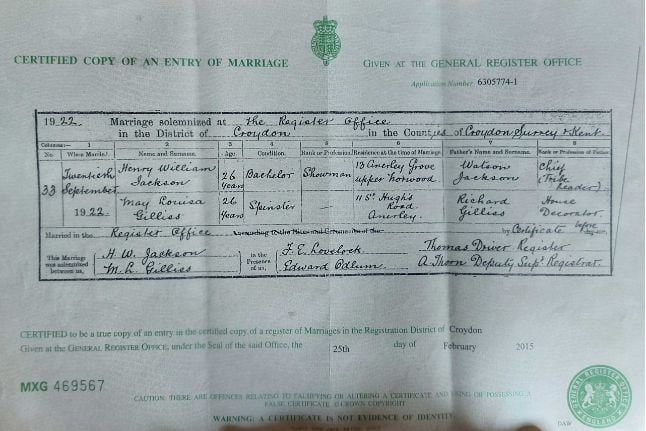 CERTIFIED COPY OF AN ENTRY OF MARRIAGE
GIVEN AT THE GENERAL REGISTER OFFICE
Application Number 6305774-1
1922. Marriage solemnized at the Register Office
in the District of Croydon in the Counties of Croydon Surrey & Kent.
Columns:— 1 2 3 4 5 6 7 8
No. When Married. Name and Surname. Age. Condition. Rank or Profession. Residence at the time of Marriage. Father's Name and Surname. Rank or Profession of Father.
33 Twentieth September 1922.
Henry William Jackson 26 years Bachelor Showman 13 Anerley Grove Upper Norwood Watson Jackson Chief (Tribe Leader).
May Louisa Gilliss 26 years Spinster — 11 St. Hugh's Road. Anerley. Richard Gilliss House Decorator.
Married in the Register Office by Certificate before
This Marriage was solemnized between us, H. W. Jackson M. L. Gilliss in the Presence of us, F. E. Lovelock Edward Odlum Thomas Driver Register A. Thorn Deputy Supt Registrar.
CERTIFIED to be a true copy of an entry in the certified copy of a register of Marriages in the Registration District of Croydon
Given at the GENERAL REGISTER OFFICE, under the Seal of the said Office, the 25th day of February 2015
MXG 469567
CAUTION: THERE ARE OFFENCES RELATING TO FALSIFYING OR ALTERING A CERTIFICATE AND USING OR POSSESSING A
FALSE CERTIFICATE © CROWN COPYRIGHT
WARNING: A CERTIFICATE IS NOT EVIDENCE OF IDENTITY.
GENERAL REGISTER OFFICE ENGLAND
DAW